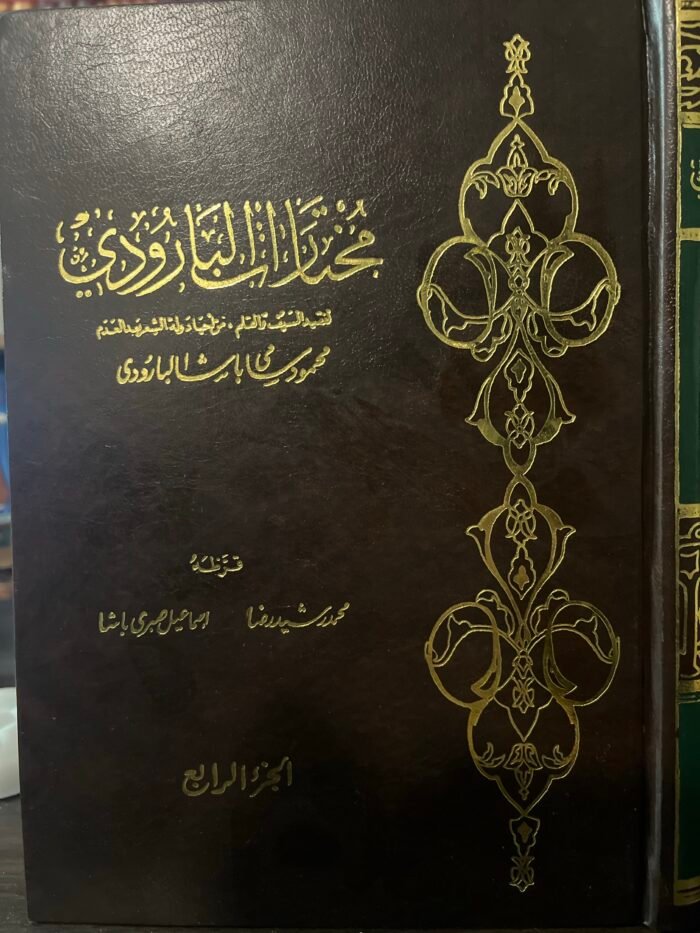 مُختَارَات البَارُودي
لفقيد السيف والقلم، من أحيا دولة الشعر بعد العدم
محمود سامي باشا البارودي
قرَّظهُ
محمد رشيد رضا اسماعيل صبري باشا
الجزء الرابع